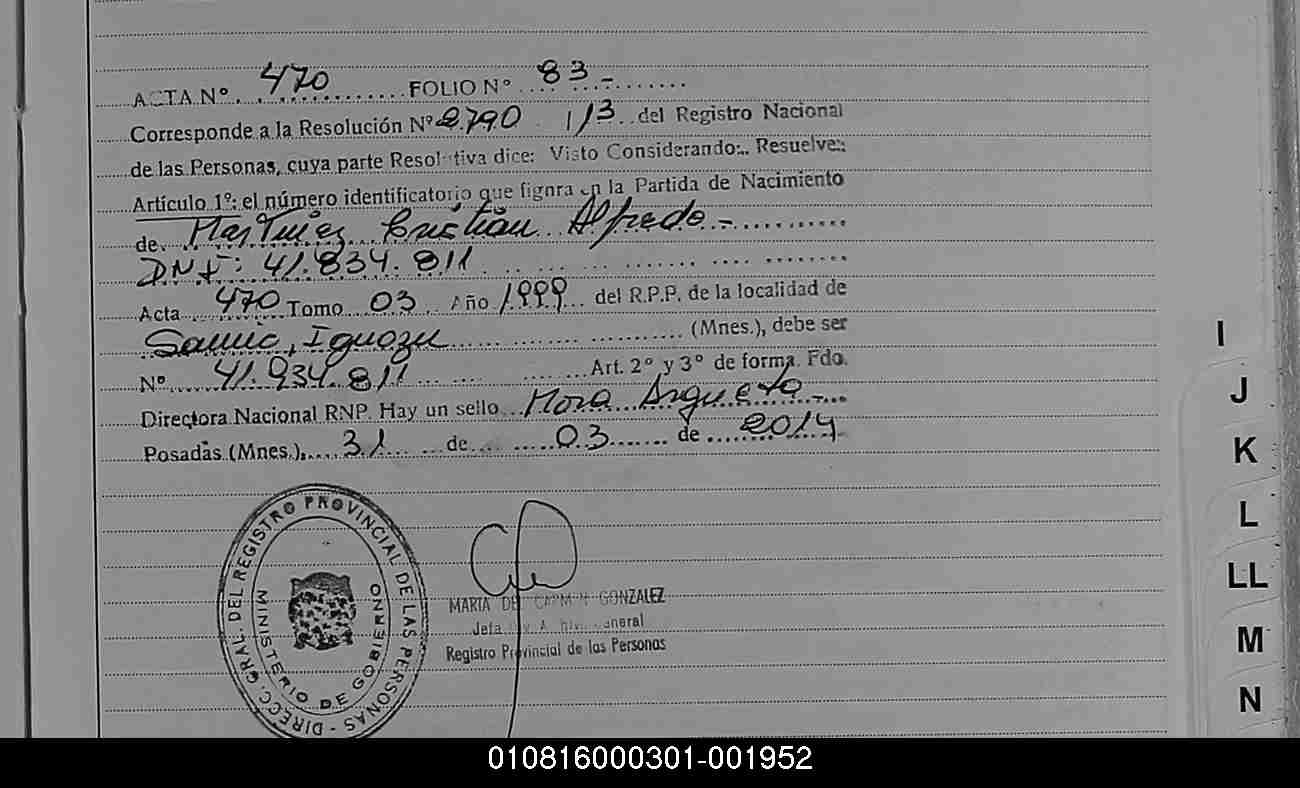 ACTA Nº 470 FOLIO Nº 83-
Corresponde a la Resolución Nº 2790 1/3 del Registro Nacional
de las Personas, cuya parte Resolutiva dice: Visto Considerando:. Resuelve:
Artículo 1º: el número identificatorio que fignra en la Partida de Nacimiento
de Martinez Cristian Alfredo.-
DNI: 41.834.811
Acta 470 Tomo 03 Año 1999 del R.P.P. de la localidad de
Iguazu (Mnes.), debe ser
Nº 41.934.811 Art. 2º y 3º de forma. Fdo.
Directora Nacional RNP. Hay un sello Mora Argueta.-
Posadas (Mnes.), 31 de 03 de 2014
DIRECC. GRAL. DEL REGISTRO PROVINCIAL DE LAS PERSONAS -
MINISTERIO DE GOBIERNO
MARIA DEL CARMEN GONZALEZ
Jefa General
Registro Provincial de las Personas
I
J
K
L
LL
M
N
010816000301-001952